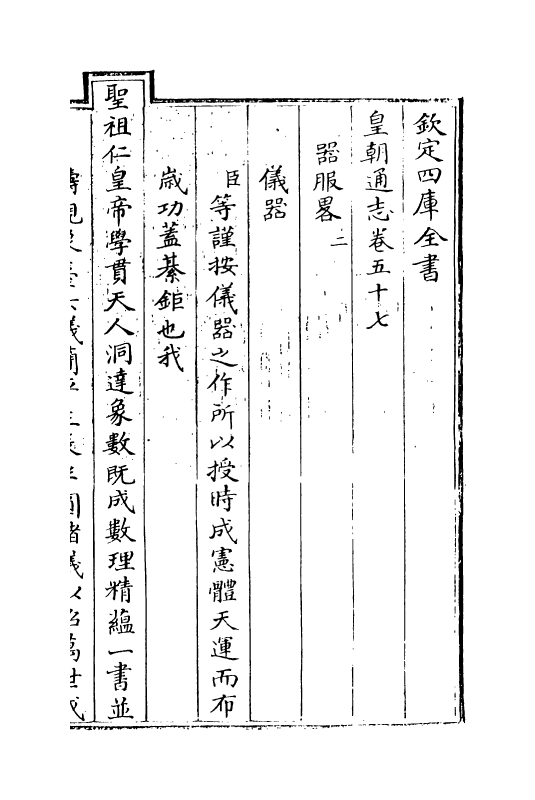 欽定四庫全書
皇朝通志卷五十七
器服畧二
儀器
臣等謹按儀器之作所以授時成憲體天運而布
歲功蓋綦鉅也我
聖祖仁皇帝學貫天人洞達象數既成數理精藴一書並
儀簡平三辰半圓諸儀以詔萬世